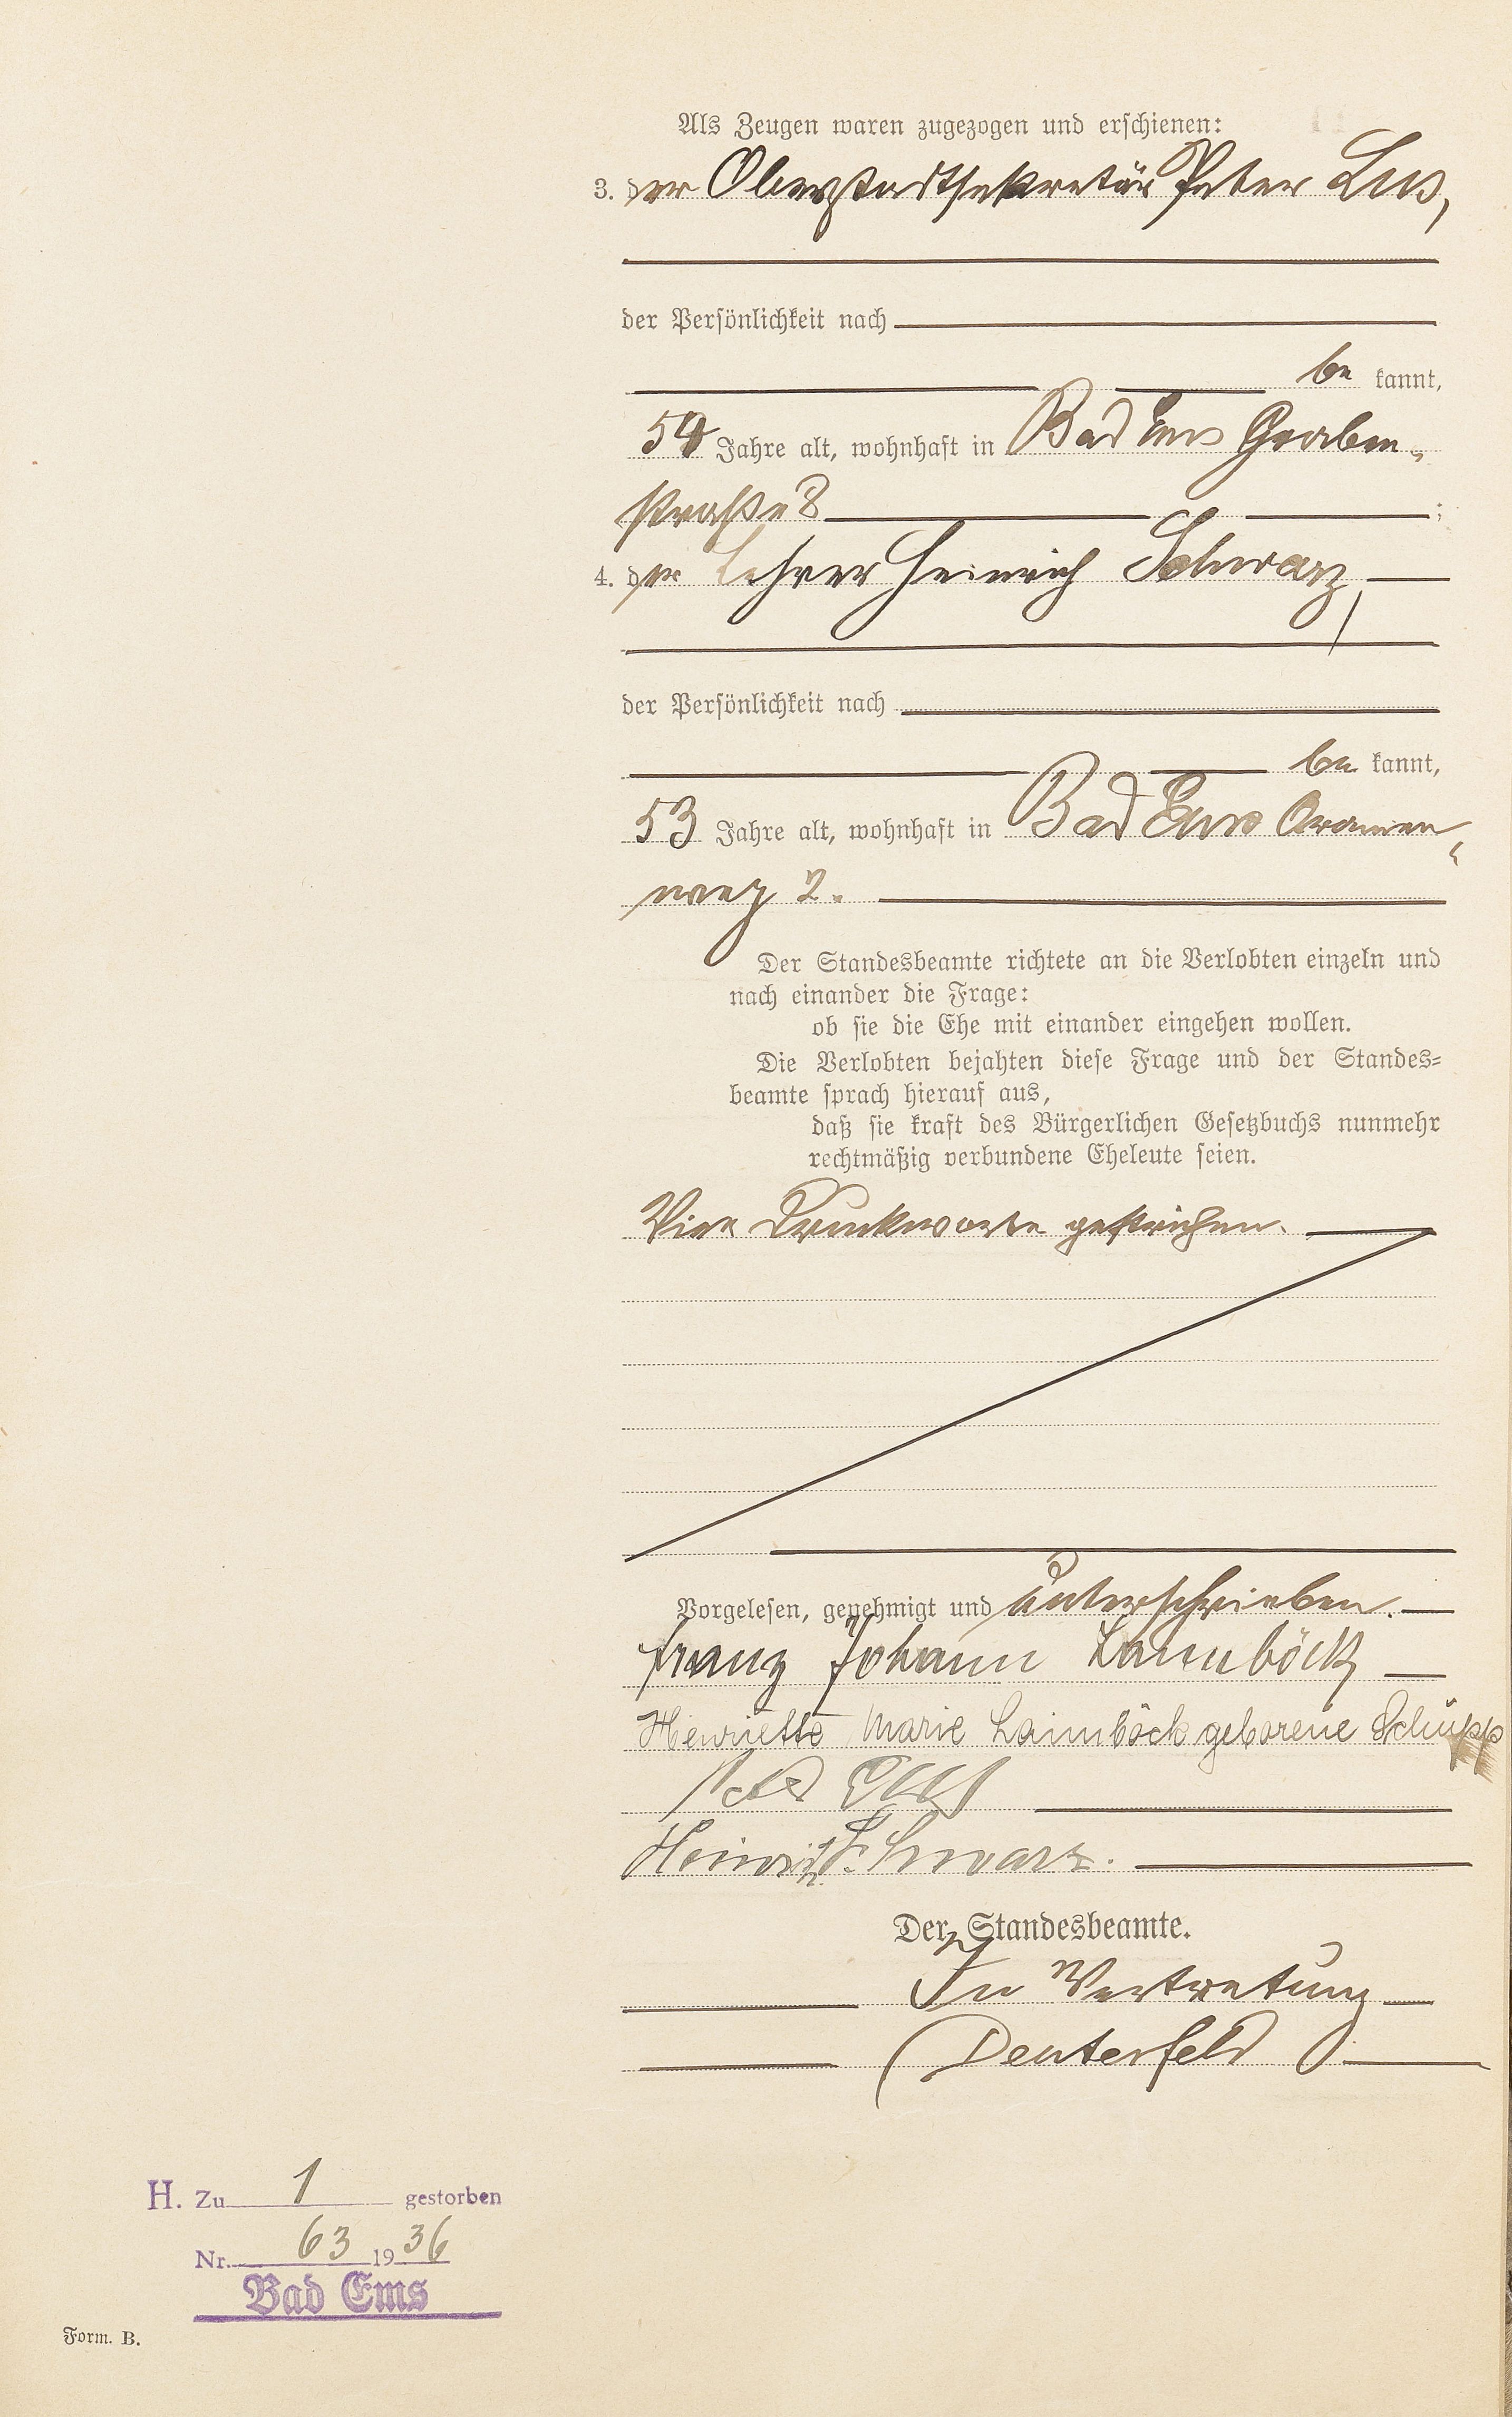 Als Zeugen waren zugezogen und erschienen:
3. der Oberstadtsekretär Peter
der Persönlichkeit nach
be kannt,
54 Jahre alt, wohnhaft in Bad Ems Graben-
straße 8 ;
4. der Lehrer Heinrich Schwarz,
der Persönlichkeit nach
be kannt,
53 Jahre alt, wohnhaft in Bad Ems Oranien-
weg 2.
Der Standesbeamte richtete an die Verlobten einzeln und
nach einander die Frage:
ob sie die Ehe mit einander eingehen wollen.
Die Verlobten bejahten diese Frage und der Standes-
beamte sprach hierauf aus,
daß sie kraft des Bürgerlichen Gesetzbuchs nunmehr
rechtmäßig verbundene Eheleute seien.
Vier Druckworte gestrichen.
Vorgelesen, genehmigt und unterschrieben.
Franz Johann Laimböck
Henriette Marie Laimböck geborene Schupp
Heinrich Schwarz.
Der Standesbeamte.
In Vertretung
Deuterfeld
H. Zu 1 gestorben
Nr. 63 1936
Bad Ems
Form. B.